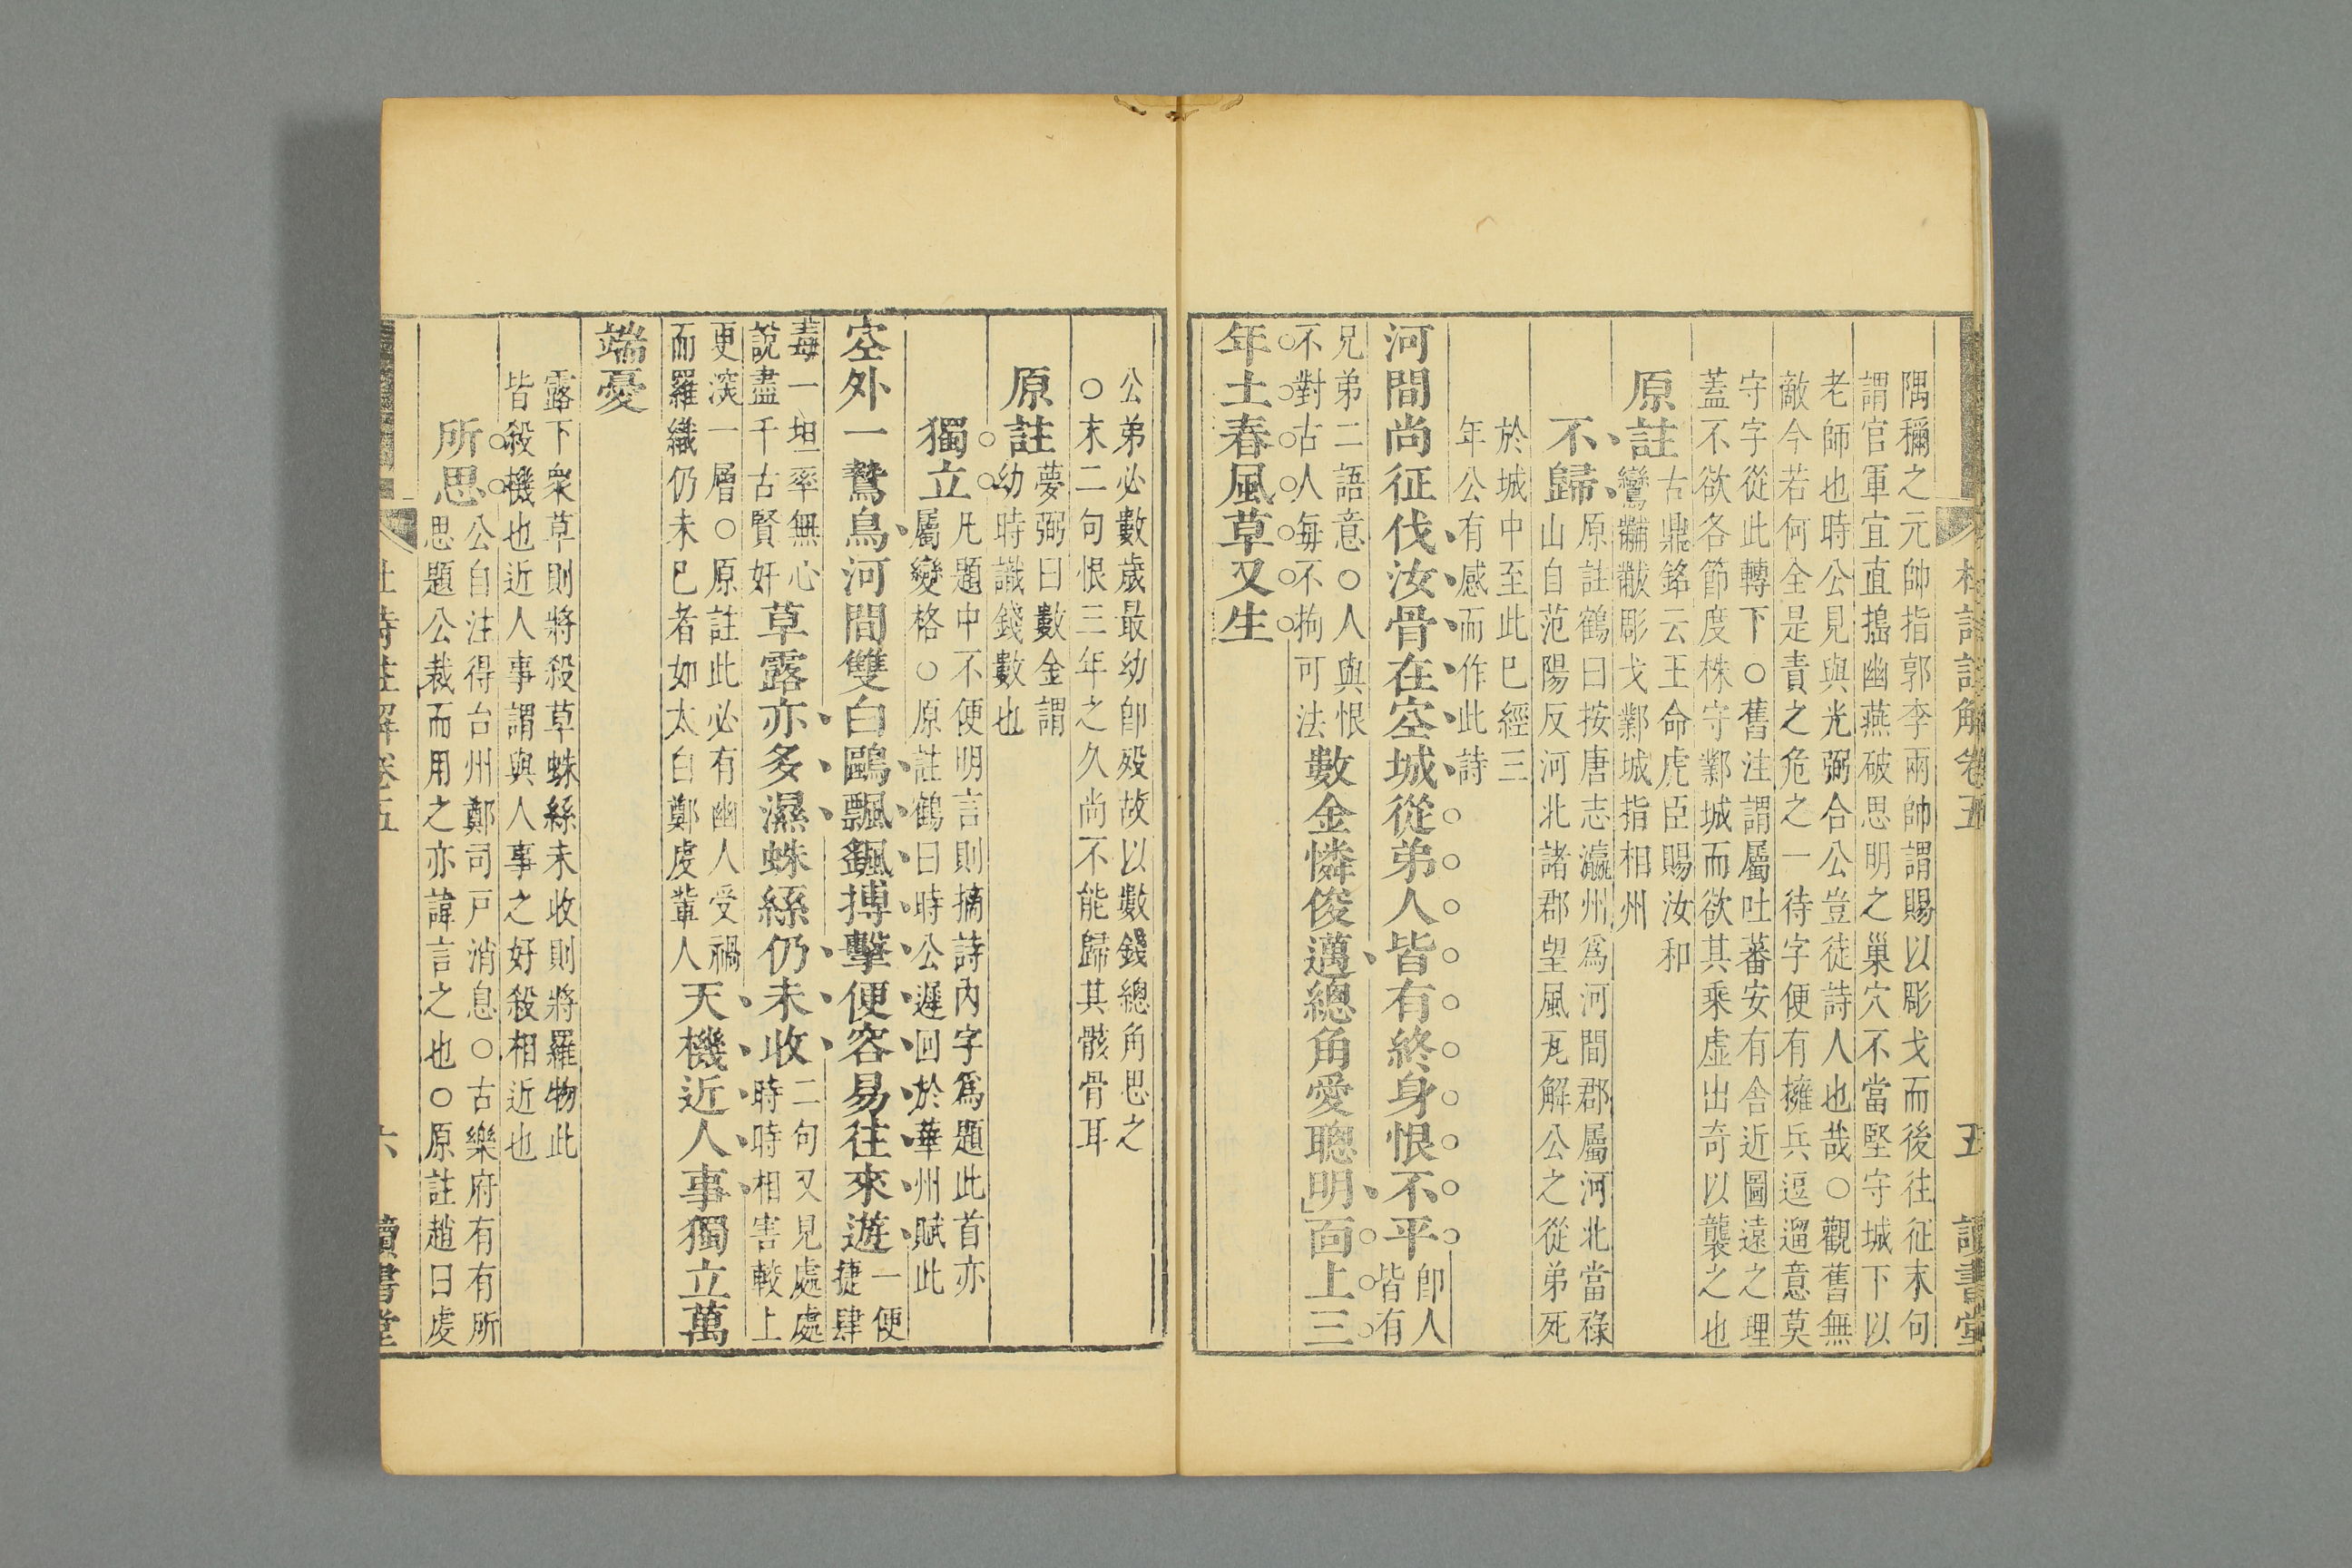 杜詩註解卷五 五 讀書堂
隅稱之元帥指郭李兩帥謂賜以彫戈而後往征末句
謂官軍宜直搗幽燕破思明之巢穴不當堅守城下以
老師也時公見與光弼合公豈徒詩人也哉○觀舊無
敵今若何全是責之危之一待字便有擁兵逗遛意莫
守字從此轉下○舊注謂屬吐蕃安有舍近圖遠之理
蓋不欲各節度株守鄴城而欲其乘虛出奇以襲之也
原註
古鼎銘云王命虎臣賜汝和
鸞黼黻彫戈鄴城指相州
不歸
原註鶴曰按唐志瀛州爲河間郡屬河北當祿
山自范陽反河北諸郡望風瓦解公之從弟死
於城中至此巳經三
年公有感而作此詩
河間尚征伐汝骨在空城從弟人皆有終身恨不平
卽人
皆有
兄弟二語意○人與恨
不對古人每不拘可法
數金憐俊邁總角愛聰明面上三
年土春風草又生
公弟必數歲最幼卽歿故以數錢總角思之
○末二句恨三年之久尚不能歸其骸骨耳
原註
夢弼曰數金謂
幼時識錢數也
獨立
凡題中不便明言則摘詩內字爲題此首亦
屬變格○原註鶴曰時公遲回於華州賦此
空外一鷙鳥河間雙白鷗飄飖搏擊便容易往來遊
一便
捷肆
毒一坦率無心
說盡千古賢奸
草露亦多濕蛛絲仍未收
二句又見處處
時時相害較上
更深一層○原註此必有幽人受禍
而羅織仍未巳者如太白鄭虔輩人
天機近人事獨立萬
端憂
露下衆草則將殺草蛛絲未收則將羅物此
皆殺機也近人事謂與人事之好殺相近也
所思
公自注得台州鄭司戸消息○古樂府有有所
思題公裁而用之亦諱言之也○原註趙曰虔
杜詩註解卷五 六 讀書堂